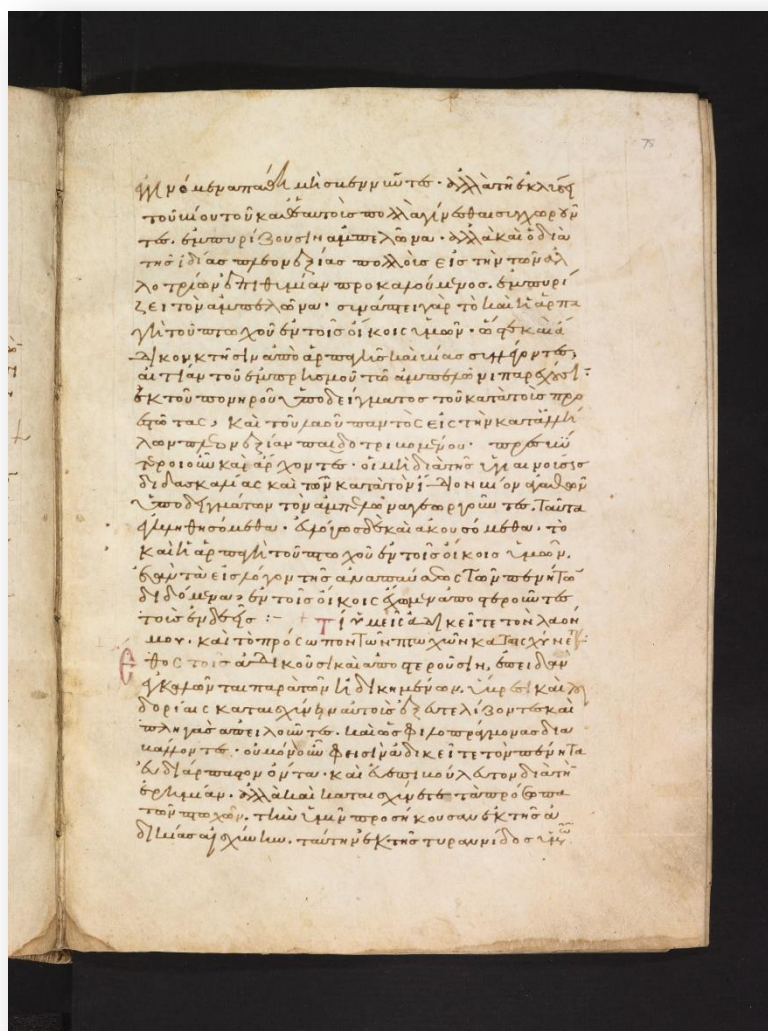 78
γινόμενα πάθη μὴ σβεννύντες· ἀλλὰ τῆ ἐκλύσει
τοῦ βίου τοῦ καθ' ἑαυτοὺς πολλὰ γίνεσθαι συγχωροῦν
τες. ἐμπυρίζουσι ἀμπελῶνα· ἀλλὰ καὶ ὁ διὰ
τῆς ἰδίας πλεονεξίας πολλοὺς εἰς τὴν τῶν ἀλ
λοτρίων ἐπιθυμίαν προκαλούμενος. ἐμπυρί
ζει τὸν ἀμπελῶνα· συνάπτει γὰρ τὸ καὶ ἡ ἁρπα
γὴ τοῦ πτωχοῦ ἐν τοῖς οἴκοις ὑμῶν· ὥστε καὶ ἄ
δικον κτῆσιν ἀπὸ ἁρπαγῆς καὶ βίας συμφέροντες,
αἰτίαν τοῦ ἐμπρησμοῦ τῶ ἀμπελῶνι παρέχουσι·
ἐκ τοῦ πονηροῦ ὑποδείγματος τοῦ κατὰ τοὺς προ
εστῶτας, καὶ τοῦ λαοῦ παντὸς εἰς τὴν κατ' ἀλλή
λων πλεονεξίαν παιδοτριβουμένου· πρεσβύ
τεροι οὖν καὶ ἄρχοντες· οἱ μὴ διὰ τῆς ὑγιαινούσης
διδασκαλίας καὶ τῶν κατὰ τὸν ἴδιον βίον ἀγαθῶν
ὑποδειγμάτων τὸν ἀμπελῶνα γεωργοῦντες. ταῦτα
ἐγκληθησόμεθα· ὁμοίως δὲ καὶ ἀκουσόμεθα· τὸ
καὶ ἡ ἁρπαγὴ τοῦ πτωχοῦ ἐν τοῖς οἴκοις ὑμῶν.
ἐὰν τὰ εἰς λόγον τῆς ἀναπαύσεως τῶν πενήτων
διδόμενα, ἐν τοῖς οἴκοις ἔχωμεν ἀποστεροῦντες
τοὺς ἐνδεεῖς :– τί ὑμεῖς ἀδικεῖτε τὸν λαόν
μου. καὶ τὸ πρόσωπον τῶν πτωχῶν καταισχύνετε:
Ἔθος τοῖς ἀδικοῦσι καὶ ἀποστεροῦσιν, ἐπειδὰν
ἐγκαλῶνται παρὰ τῶν ἠδικημένων. ὕβρεσι καὶ λοι
δορίαις καταισχύνειν αὐτοὺς ἐξευτελίζοντες καὶ
πληγὰς ἀπειλοῦντες. καὶ ὡς φιλοπράγμονας δια
βάλλοντες· οὐ μόνον οὖν φησὶν ἀδικεῖτε τὸν πένητα
εὐδιάρπαστον ὄντα· καὶ εὐεπιβούλευτον διὰ τὴν
ἐρημίαν. ἀλλὰ καὶ καταισχύνετε τὰ πρόσωπα
τῶν πτωχῶν. τὴν ὑμῖν προσήκουσαν ἐκ τῆς ἀ
δικίας αἰσχύνην. ταύτην ἐκ τῆς τυραννίδος ὑμῶν